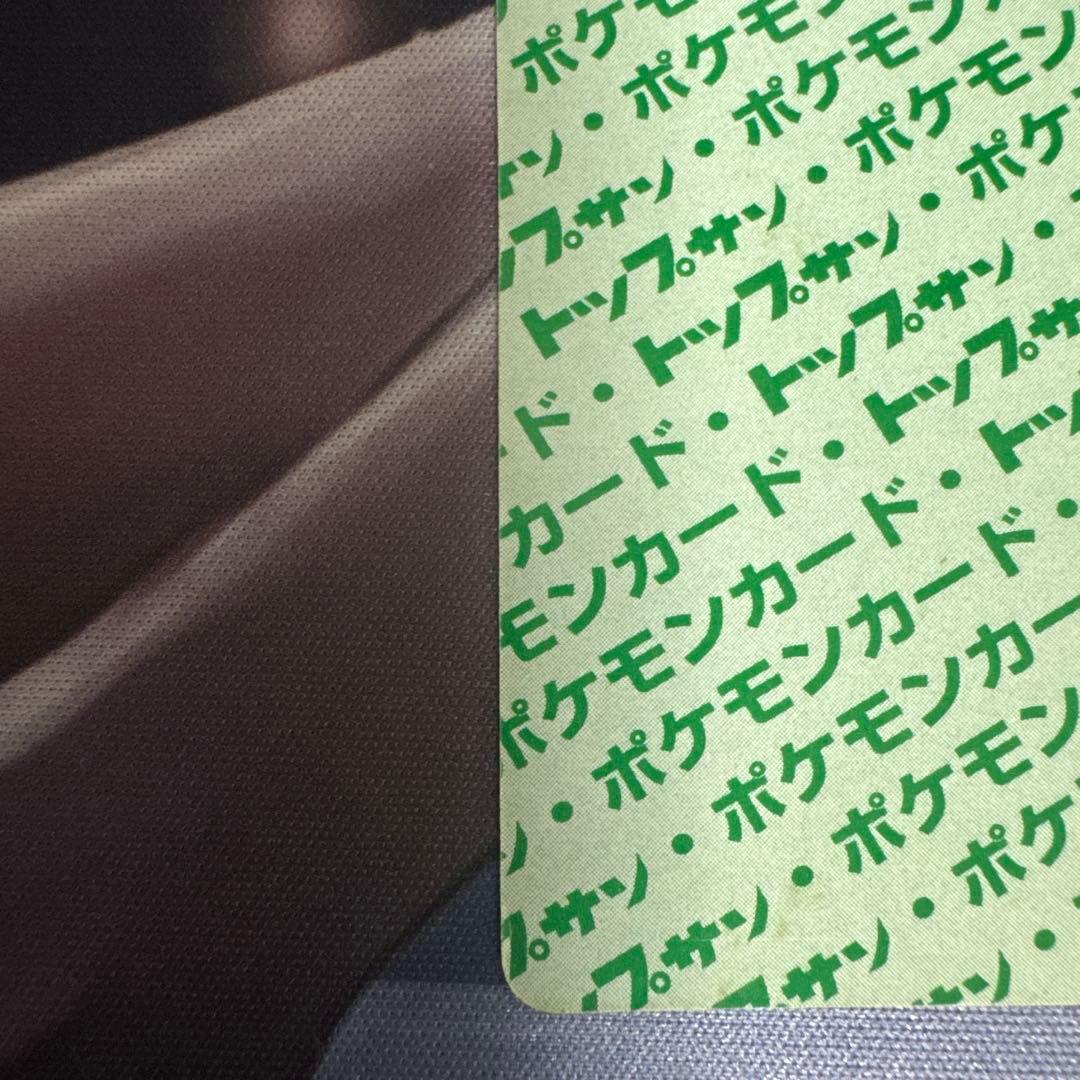 ポケモ
サン・ポケモン
ップサン・ポケモン
トップサン・ポケモン
ド・トップサン・ポケ
カード・トップサン・
モンカード・トップサ
ポケモンカード・トッ
ン・ポケモンカード・
プサン・ポケモンカー
ップサン・ポケモン
プサン・ポケ
サン・